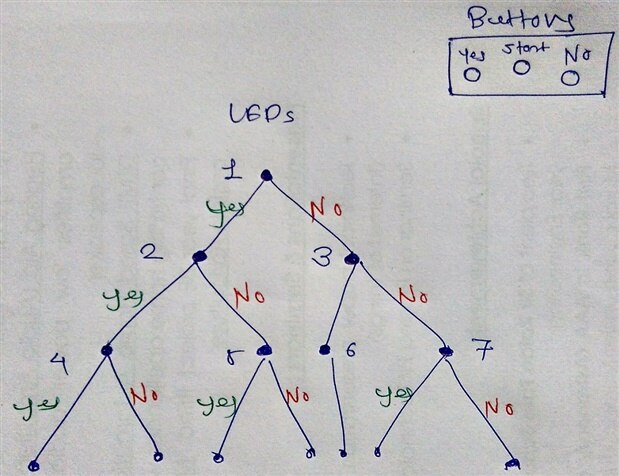 Buttons
Yes Start No
LEDs
1
Yes No
2 3
Yes No No
4 5 6 7
Yes No Yes No Yes No